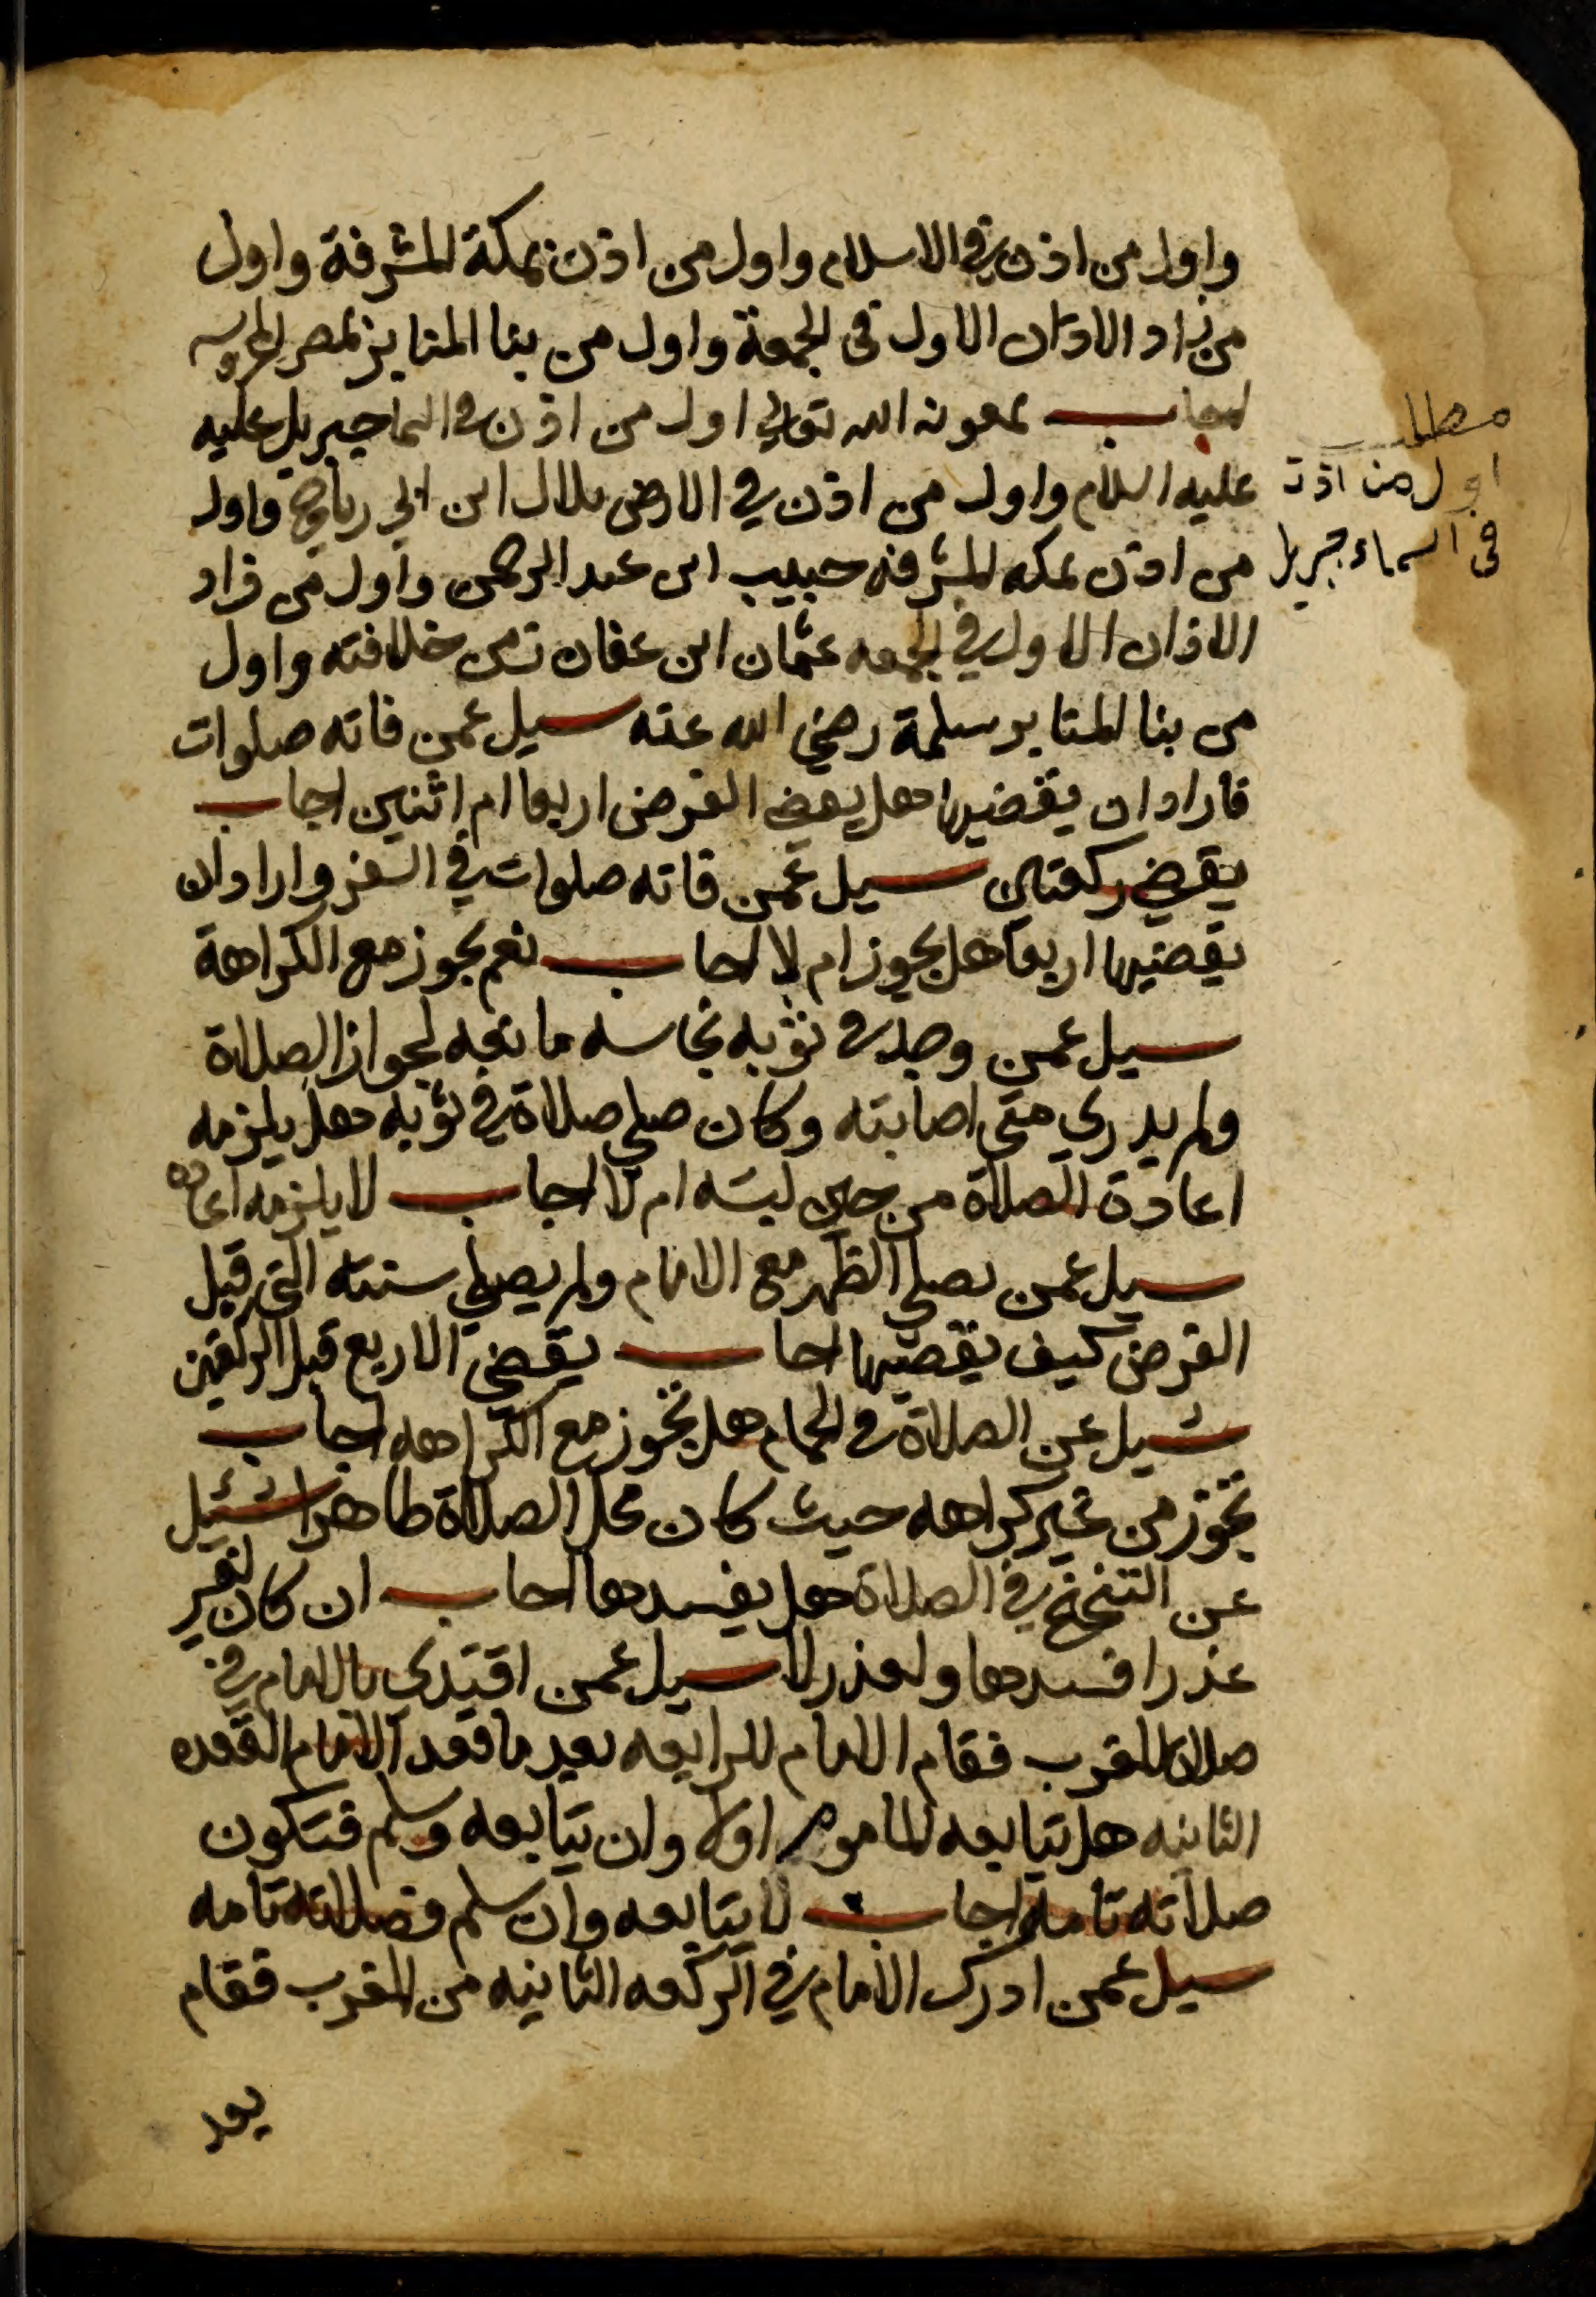 واول من اذن في الاسلام واول من اذن بمكة المشرفة واول
من زاد الاذان الاول في الجمعة واول من بنا المنابر بمصر المحروسه
اجاب بمعونة الله تعالي اول من اذن في السما جبريل عليه
عليه السلام واول من اذن في الارض بلال ابن ابي رباح واول
من اذن بمكه المشرفه حبيب ابن عبد الرحمن واول من زاد
الاذان الاول في الجمعه عثمان ابن عفان زمن خلافته واول
من بنا المنابر سلمة رضي الله عنه سيل عمن فاته صلوات
فاراد ان يقضيها هل يقضي الفرض اربعا ام اثنين اجاب
يقضي ركعتين سيل عمن فاته صلوات في السفر واراد ان
يقضيها اربعا هل يجوز ام لا اجاب نعم يجوز مع الكراهة
سيل عمن وجد في ثوبه نجاسه مانعه لجواز الصلاة
ولم يدري متي اصابته وكان صلي صلاة في ثوبه هل يلزمه
اعادة الصلاة من حين لبسه ام لا اجاب لا يلزمه اعاده
سيل عمن يصلي الظهر مع الامام ولم يصلي سنته التي قبل
الفرض كيف يقضيها اجاب يقضي الاربع قبل الركعتين
سيل عن الصلاة في الحمام هل تجوز مع الكراهه اجاب
تجوز من غير كراهه حيث كان محل الصلاة طاهرا سئيل
عن التنحنح في الصلاة هل يفسدها اجاب ان كان لغير
عذر افسدها ولعذر لا سيل عمن اقتدي بالامام في
صلاة المغرب فقام الامام للرابعه بعد ما قعد الامام القعده
الثانيه هل يتابعه الماموم اولا وان يتابعه وسلم فتكون
صلاته تامه اجاب لا يتابعه وان سلم فصلاته تامه
سيل عمن ادرك الامام في الركعه الثانيه من المغرب فقام
بعد
مطلب
اول من اذن
في السماء جبريل